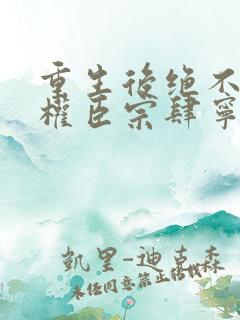 重生後绝不
權臣宗肆寧
凱里-迪克森
未经同意禁止转载